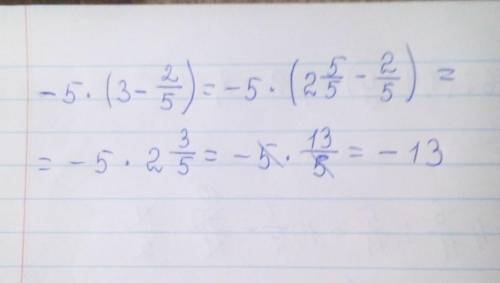 -5 · (3 - 2/5) = -5 · (2 5/5 - 2/5) =
= -5 · 2 3/5 = -5 · 13/5 = -13